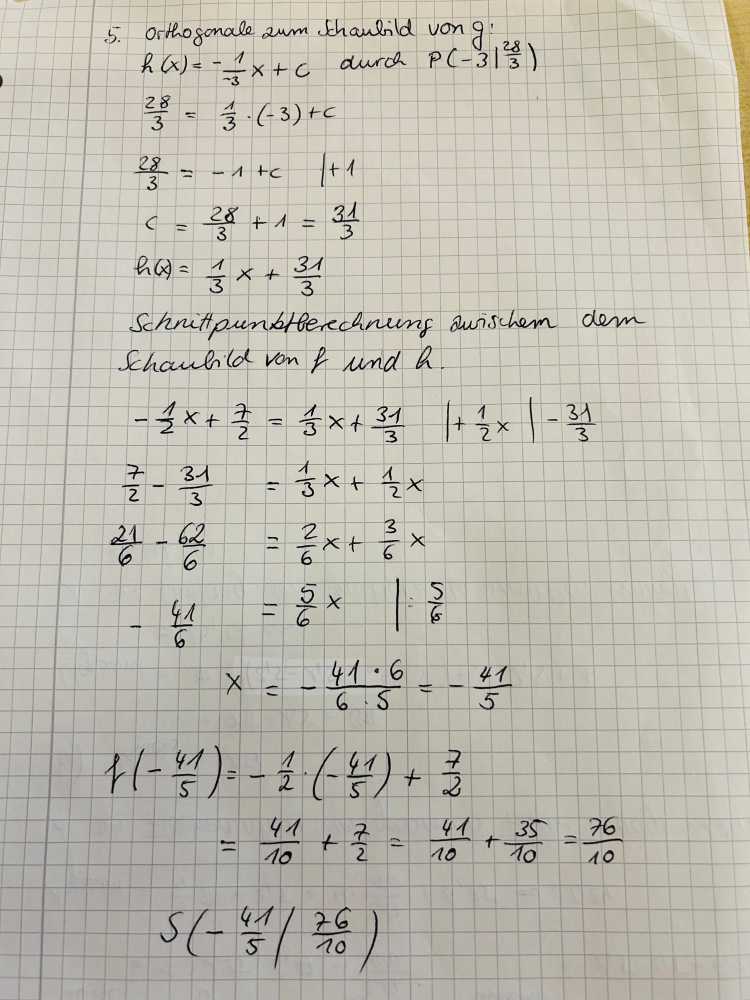 5. Orthogonale zum Schaubild von g:
h(x) = - 1/-3 x + c durch P(-3 | 28/3)
28/3 = 1/3 · (-3) + c
28/3 = -1 + c |+1
c = 28/3 + 1 = 31/3
h(x) = 1/3 x + 31/3
Schnittpunktberechnung zwischem dem
Schaubild von f und h.
- 1/2 x + 7/2 = 1/3 x + 31/3 | + 1/2 x | - 31/3
7/2 - 31/3 = 1/3 x + 1/2 x
21/6 - 62/6 = 2/6 x + 3/6 x
- 41/6 = 5/6 x | : 5/6
x = - 41 · 6 / 6 · 5 = - 41/5
f(- 41/5) = - 1/2 · (- 41/5) + 7/2
= 41/10 + 7/2 = 41/10 + 35/10 = 76/10
S(- 41/5 | 76/10)